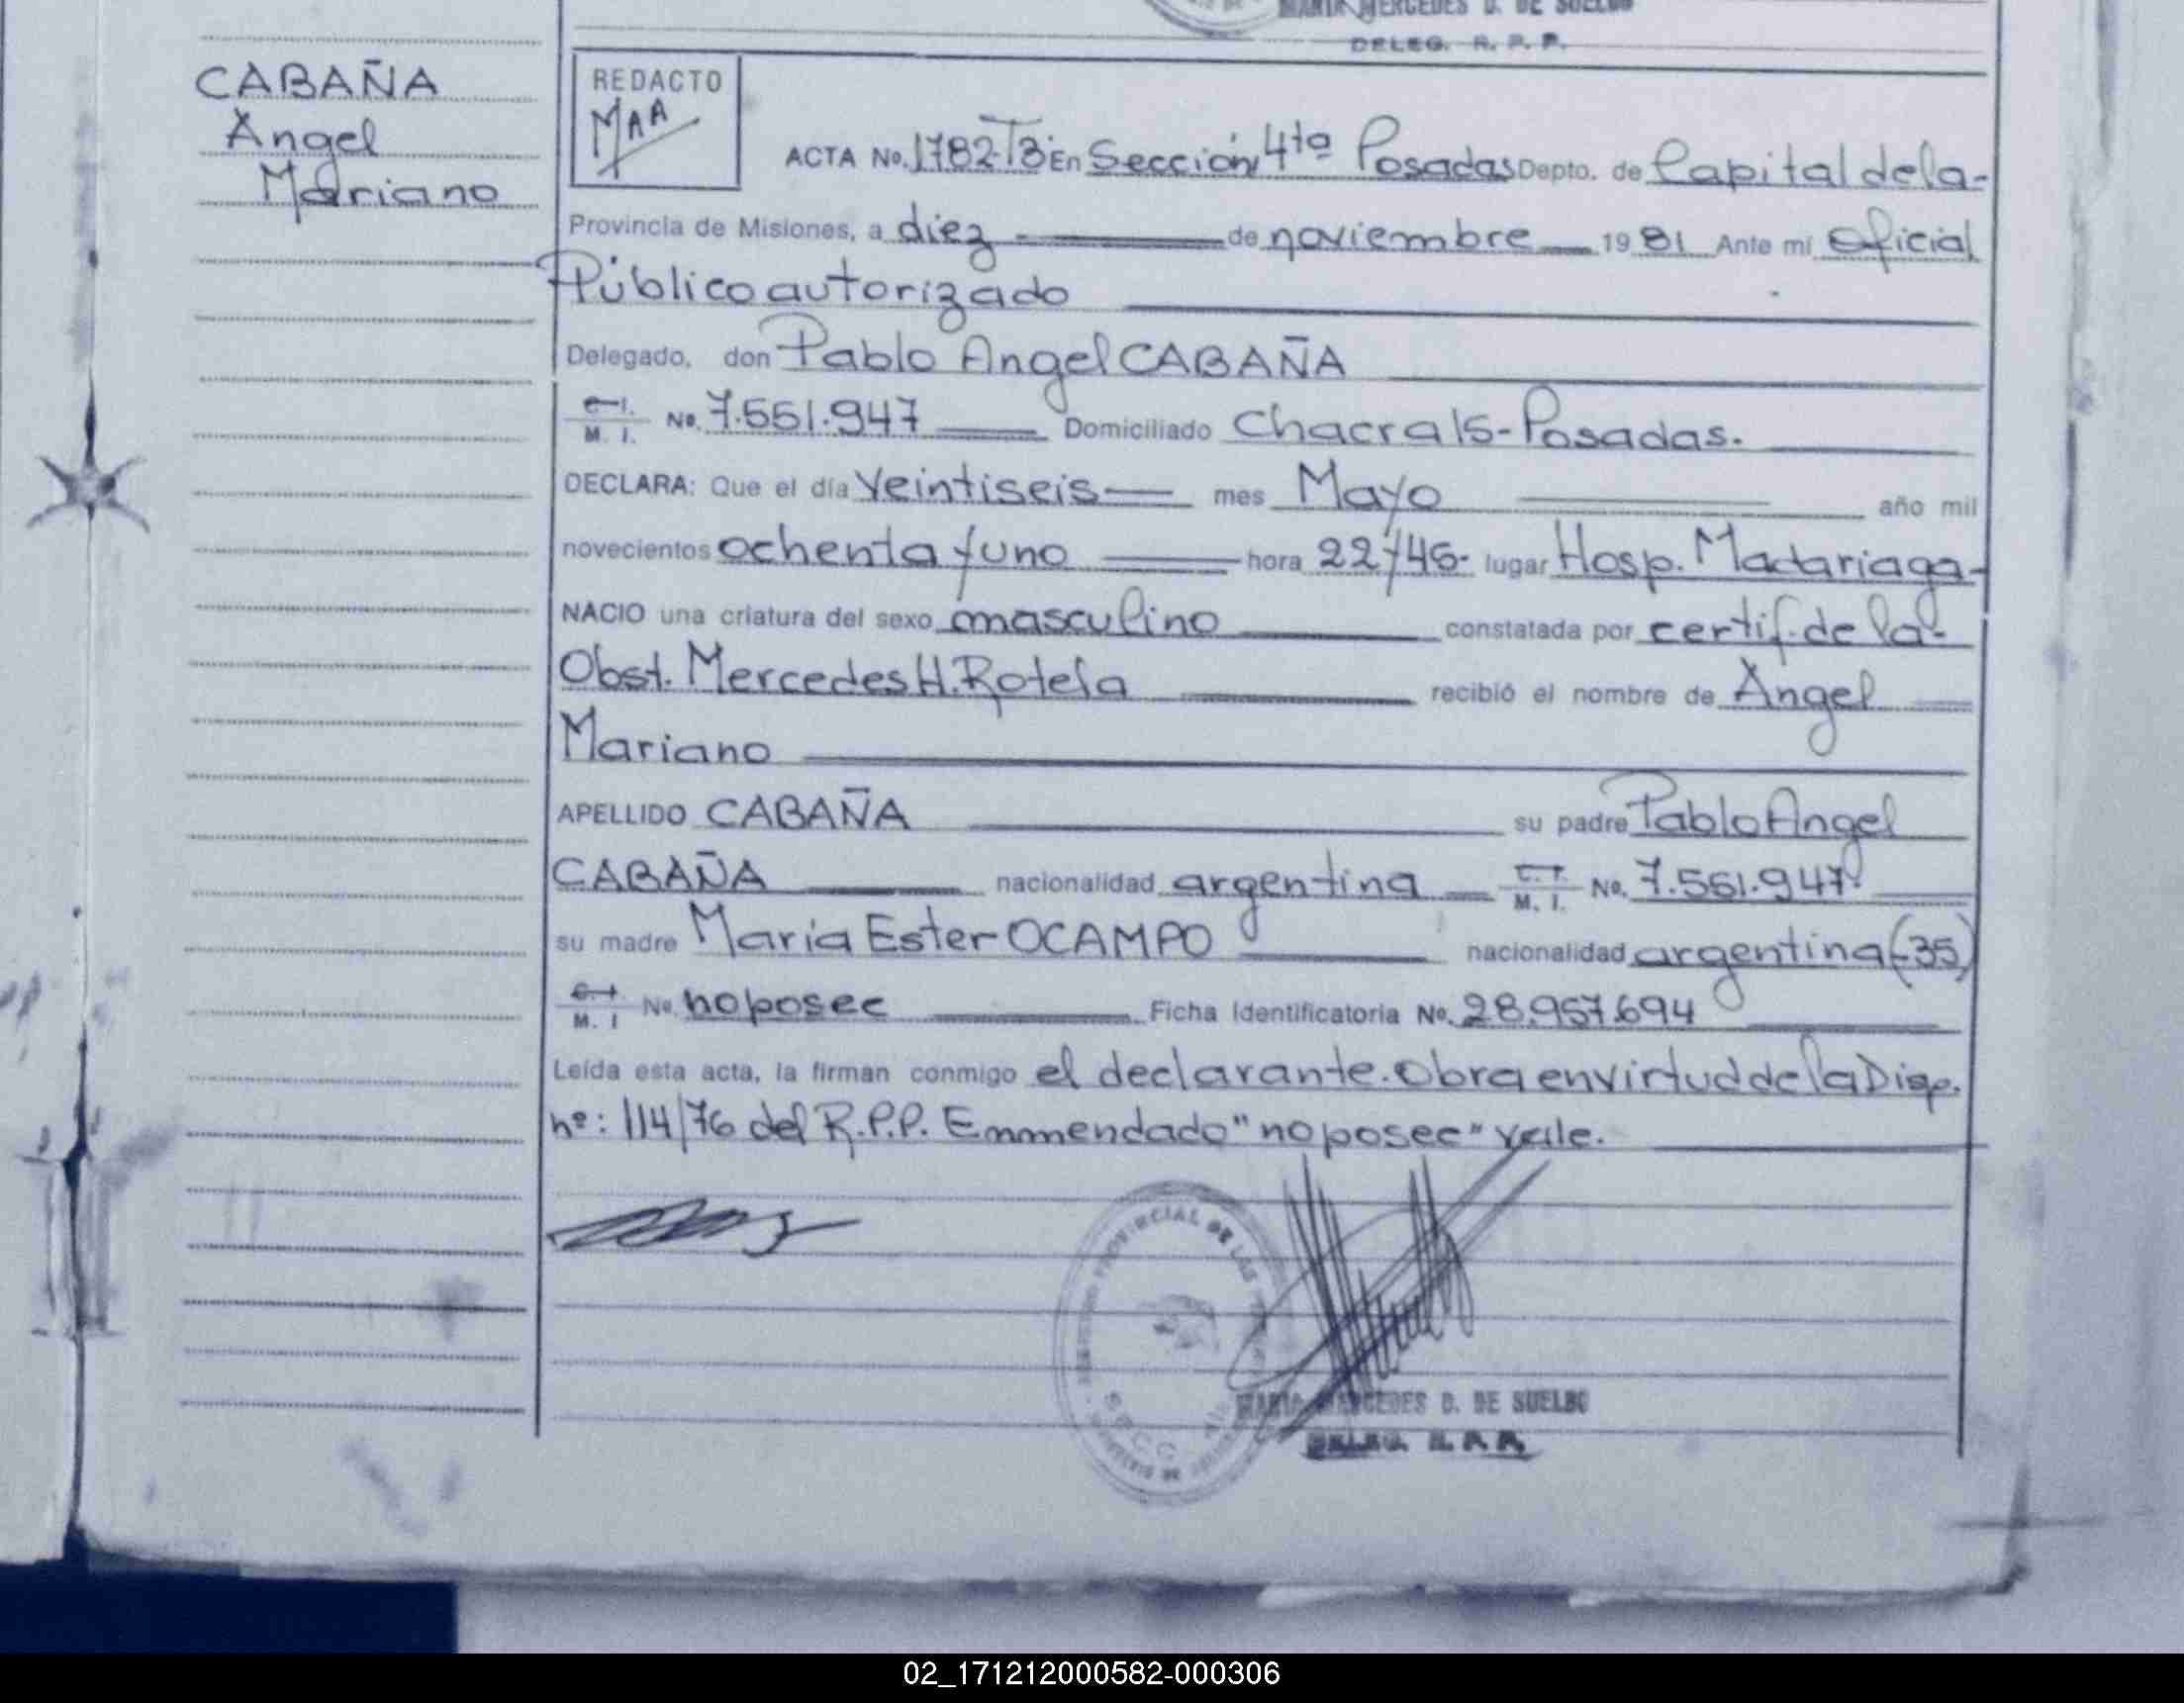 MARIA MERCEDES D. DE SUELBO
DELEG. R. P. P.
CABAÑA
Angel
Mariano
REDACTO
MAA
ACTA No. 1782-T3 En Sección 4ta Posadas Depto. de Capital de la-
Provincia de Misiones, a diez - de noviembre 1981 Ante mí Oficial
Público autorizado
Delegado, don Pablo Angel CABAÑA
C. I. M. I. No. 7.551.947 Domiciliado Chacra 15-Posadas.
DECLARA: Que el día veintiseis mes Mayo año mil
novecientos ochenta y uno hora 22/45- lugar Hosp. Madariaga-
NACIO una criatura del sexo masculino constatada por certif. de la-
Obst. Mercedes H. Rotela recibió el nombre de Angel
Mariano
APELLIDO CABAÑA su padre Pablo Angel
CABAÑA nacionalidad argentina C. I. M. I. No. 7.551.947
su madre Maria Ester OCAMPO nacionalidad argentina (35)
C. I. M. I No. no posee Ficha Identificatoria No. 28.957.694
Leída esta acta, la firman conmigo el declarante. Obra en virtud de la Disp.
nº: 114/76 del R.P.P. Enmendado "no posee" vale.
PROVINCIAL DE LAS
MARIA MERCEDES D. DE SUELBO
DELEG. R. P. P.
02_171212000582-000306